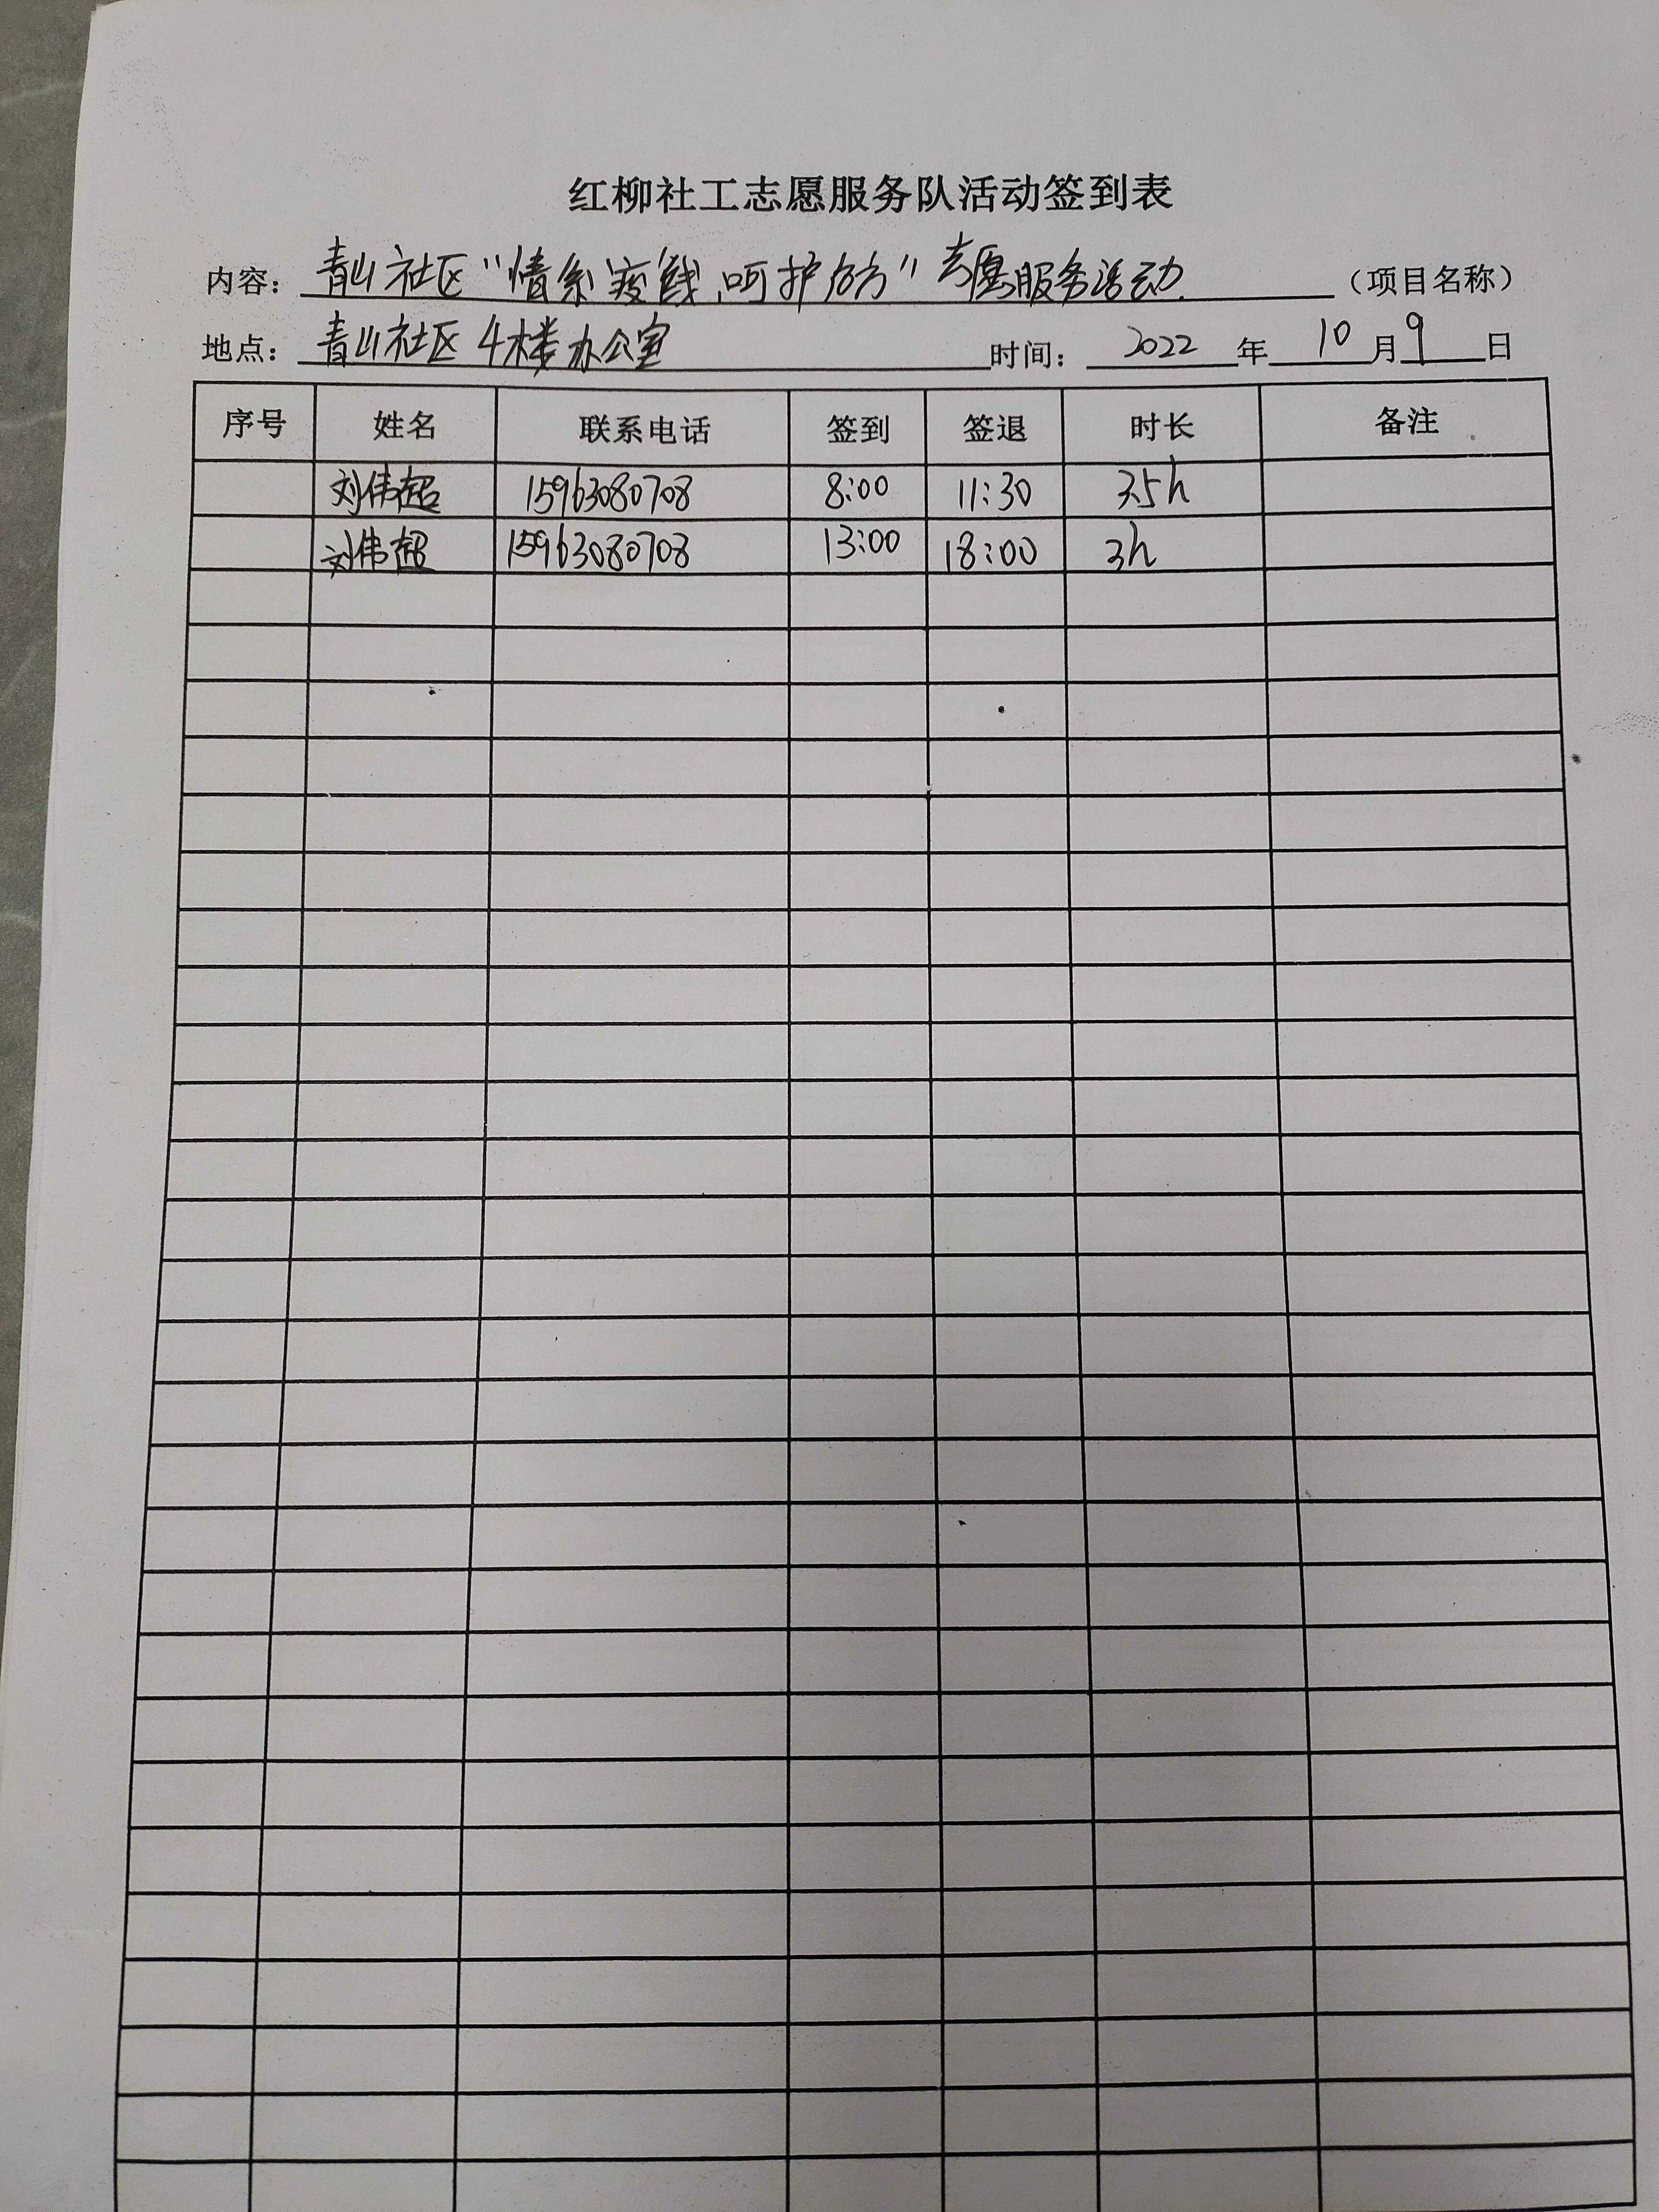 红柳社工志愿服务队活动签到表
内容：青山社区“情系‘疫’线，呵护方”志愿服务活动（项目名称）
地点：青山社区4楼办公室 时间：2022年10月9日
序号 姓名 联系电话 签到 签退 时长 备注
刘伟超 15963080708 8:00 11:30 3.5h
刘伟超 15963080708 13:00 18:00 3h